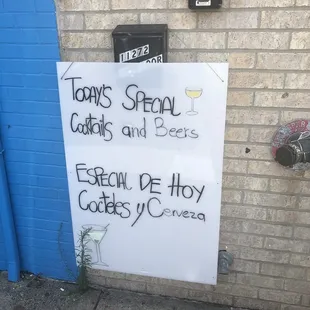 11272
TODAY'S SPECIAL
Cocktails and Beers
ESPECIAL DE HOY
Cocteles y Cerveza